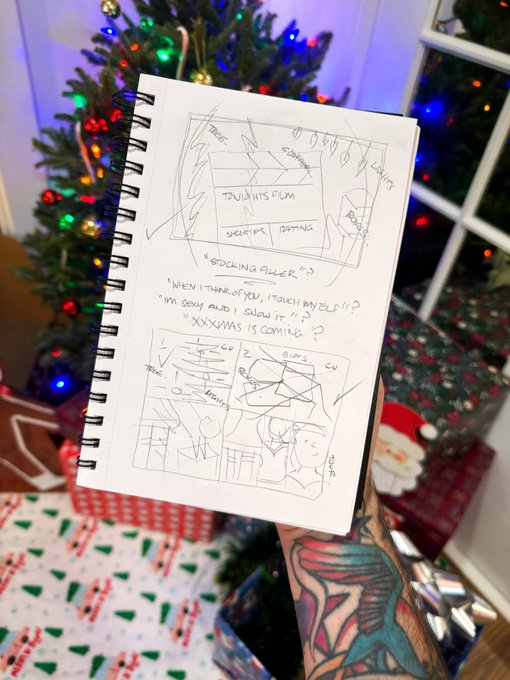 TREE
CLAPPER
LIGHTS
TONIGHTS FILM
BOXES
SHOWTIME RATING
"STOCKING FILLER"?
"WHEN I THINK OF YOU, I TOUCH MY ELF"?
"IM SEXY AND I SNOW IT"?
"XXXMAS IS COMING"?
1 CU
2 GIFTS CU
TREE
BOXES
LIGHTS